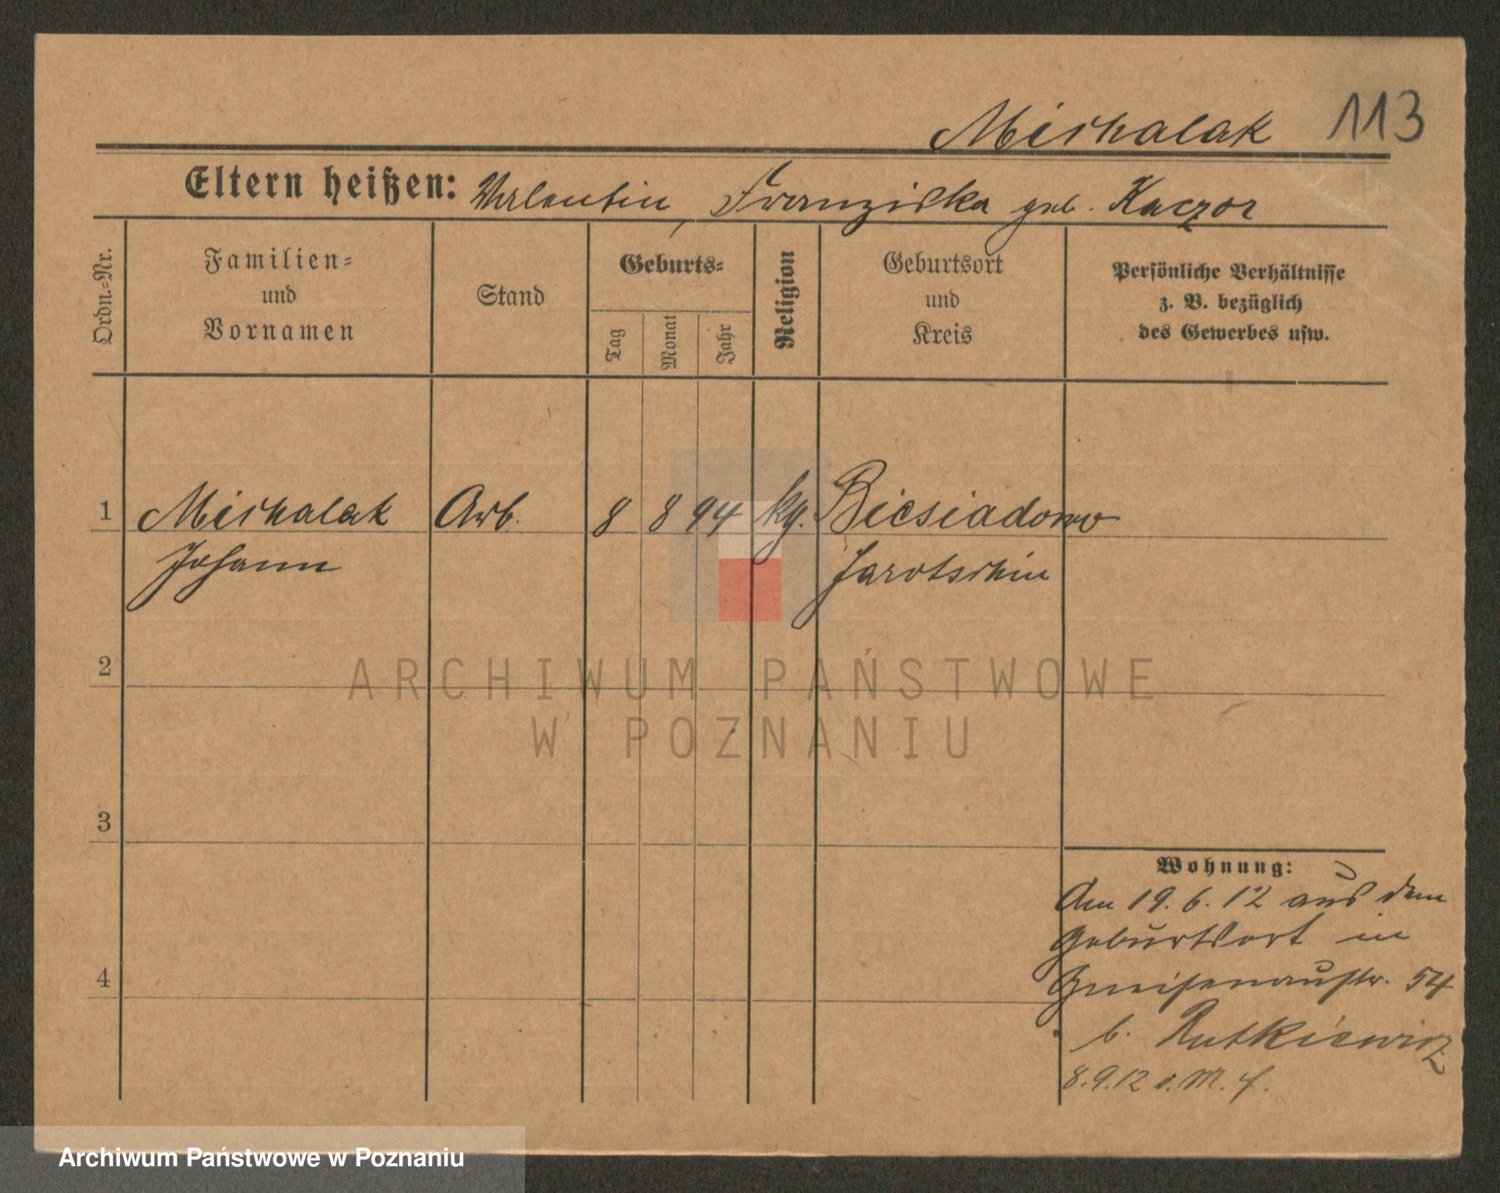 Michalak 113
Eltern heißen: Valentin, Franziska geb. Kaczor
Ordn.-Nr.
Familien-
und
Vornamen
Stand
Geburts-
Tag
Monat
Jahr
Religion
Geburtsort
und
Kreis
Persönliche Verhältnisse
z. B. bezüglich
des Gewerbes usw.
1 Michalak Arb. 8 8 94 kg. Biesiadowo
Johann Jarotschin
2
ARCHIWUM PAŃSTWOWE
W POZNANIU
3
Wohnung:
Am 19.6.12 aus dem
Geburtsort in
4
Gneisenaustr. 54
b. Rutkiewicz
8.9.12
Archiwum Państwowe w Poznaniu